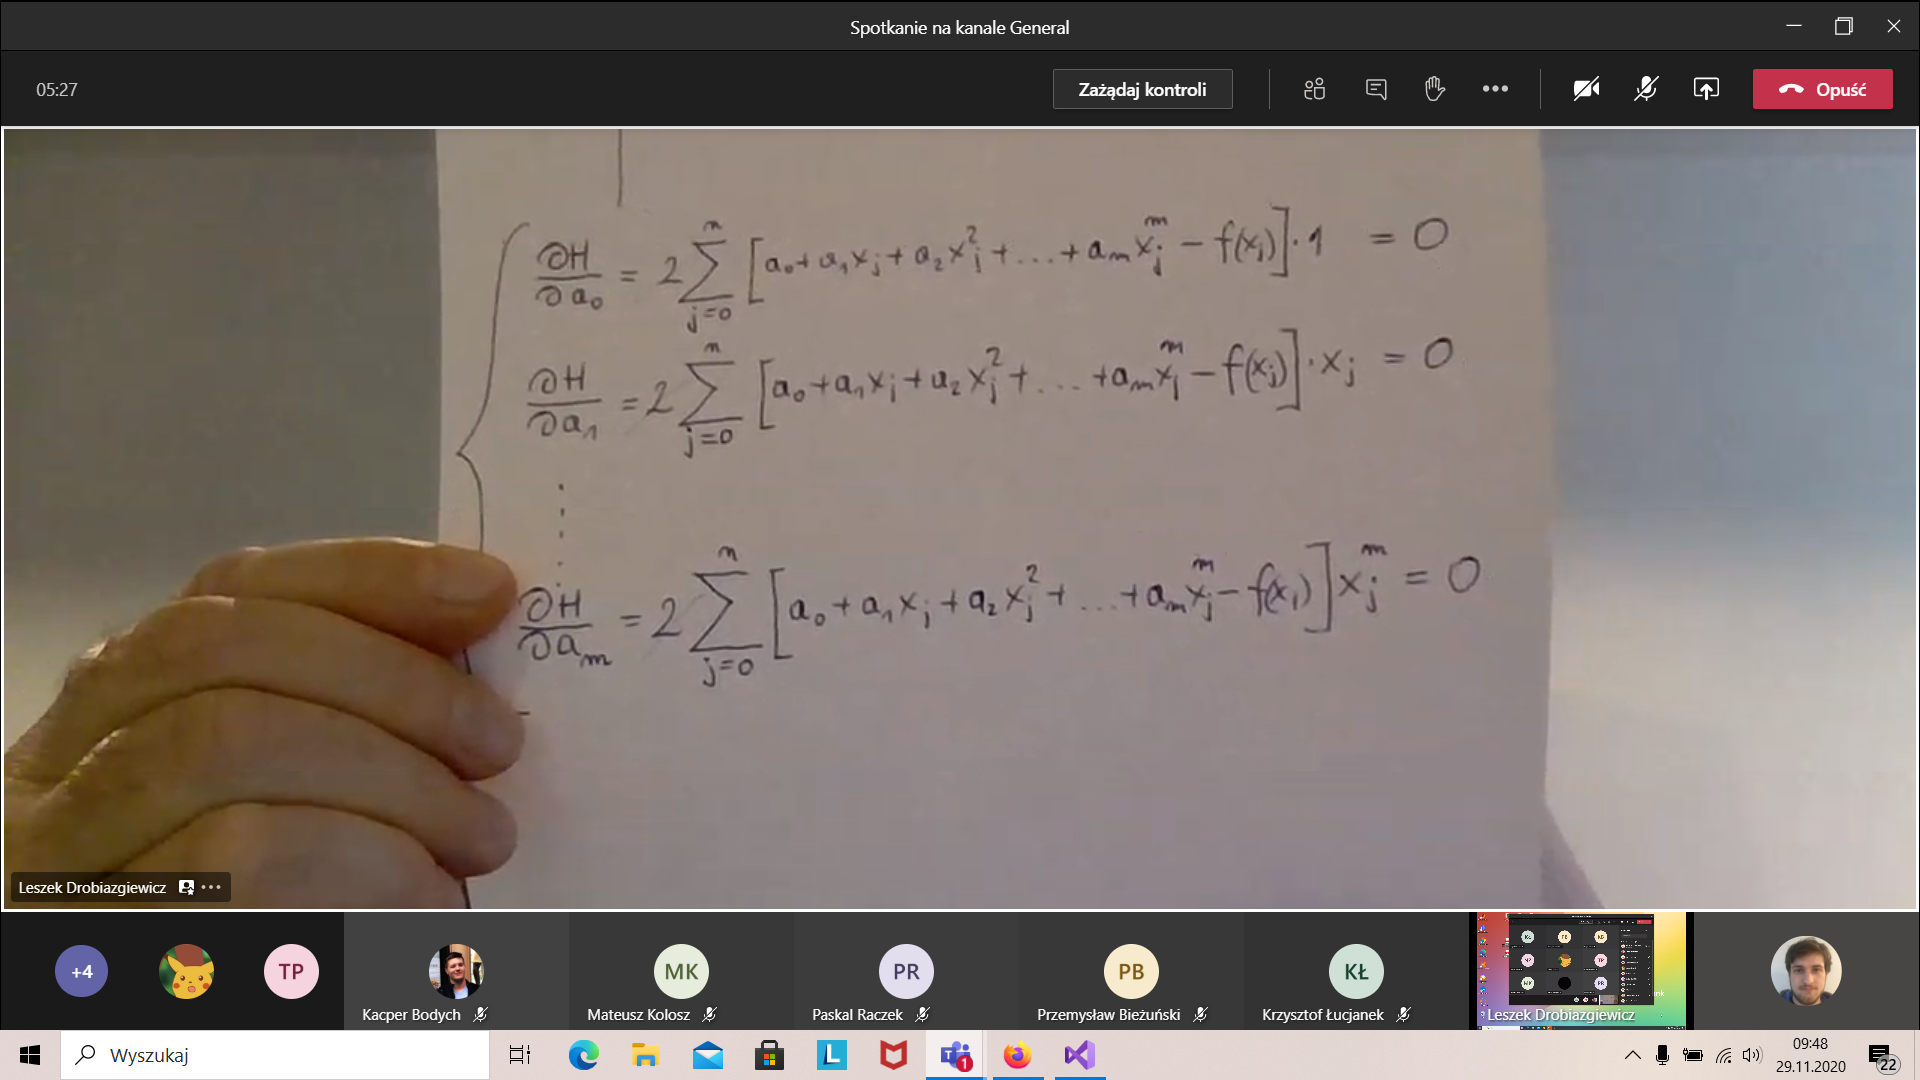 Spotkanie na kanale General
05:27
Zażądaj kontroli
Opuść
∂H/∂a₀ = 2 ∑_{j=0}^{n} [a₀ + a₁x_j + a₂x_j² + ... + a_m x_j^m − f(x_j)]·1 = 0
∂H/∂a₁ = 2 ∑_{j=0}^{n} [a₀ + a₁x_j + a₂x_j² + ... + a_m x_j^m − f(x_j)]·x_j = 0
⋮
∂H/∂a_m = 2 ∑_{j=0}^{n} [a₀ + a₁x_j + a₂x_j² + ... + a_m x_j^m − f(x_j)] x_j^m = 0
Leszek Drobiazgiewicz
+4
TP
Kacper Bodych
MK
Mateusz Kolosz
PR
Paskal Raczek
PB
Przemysław Bieżuński
KŁ
Krzysztof Łucjanek
Leszek Drobiazgiewicz
Wyszukaj
L
1
09:48
29.11.2020
22